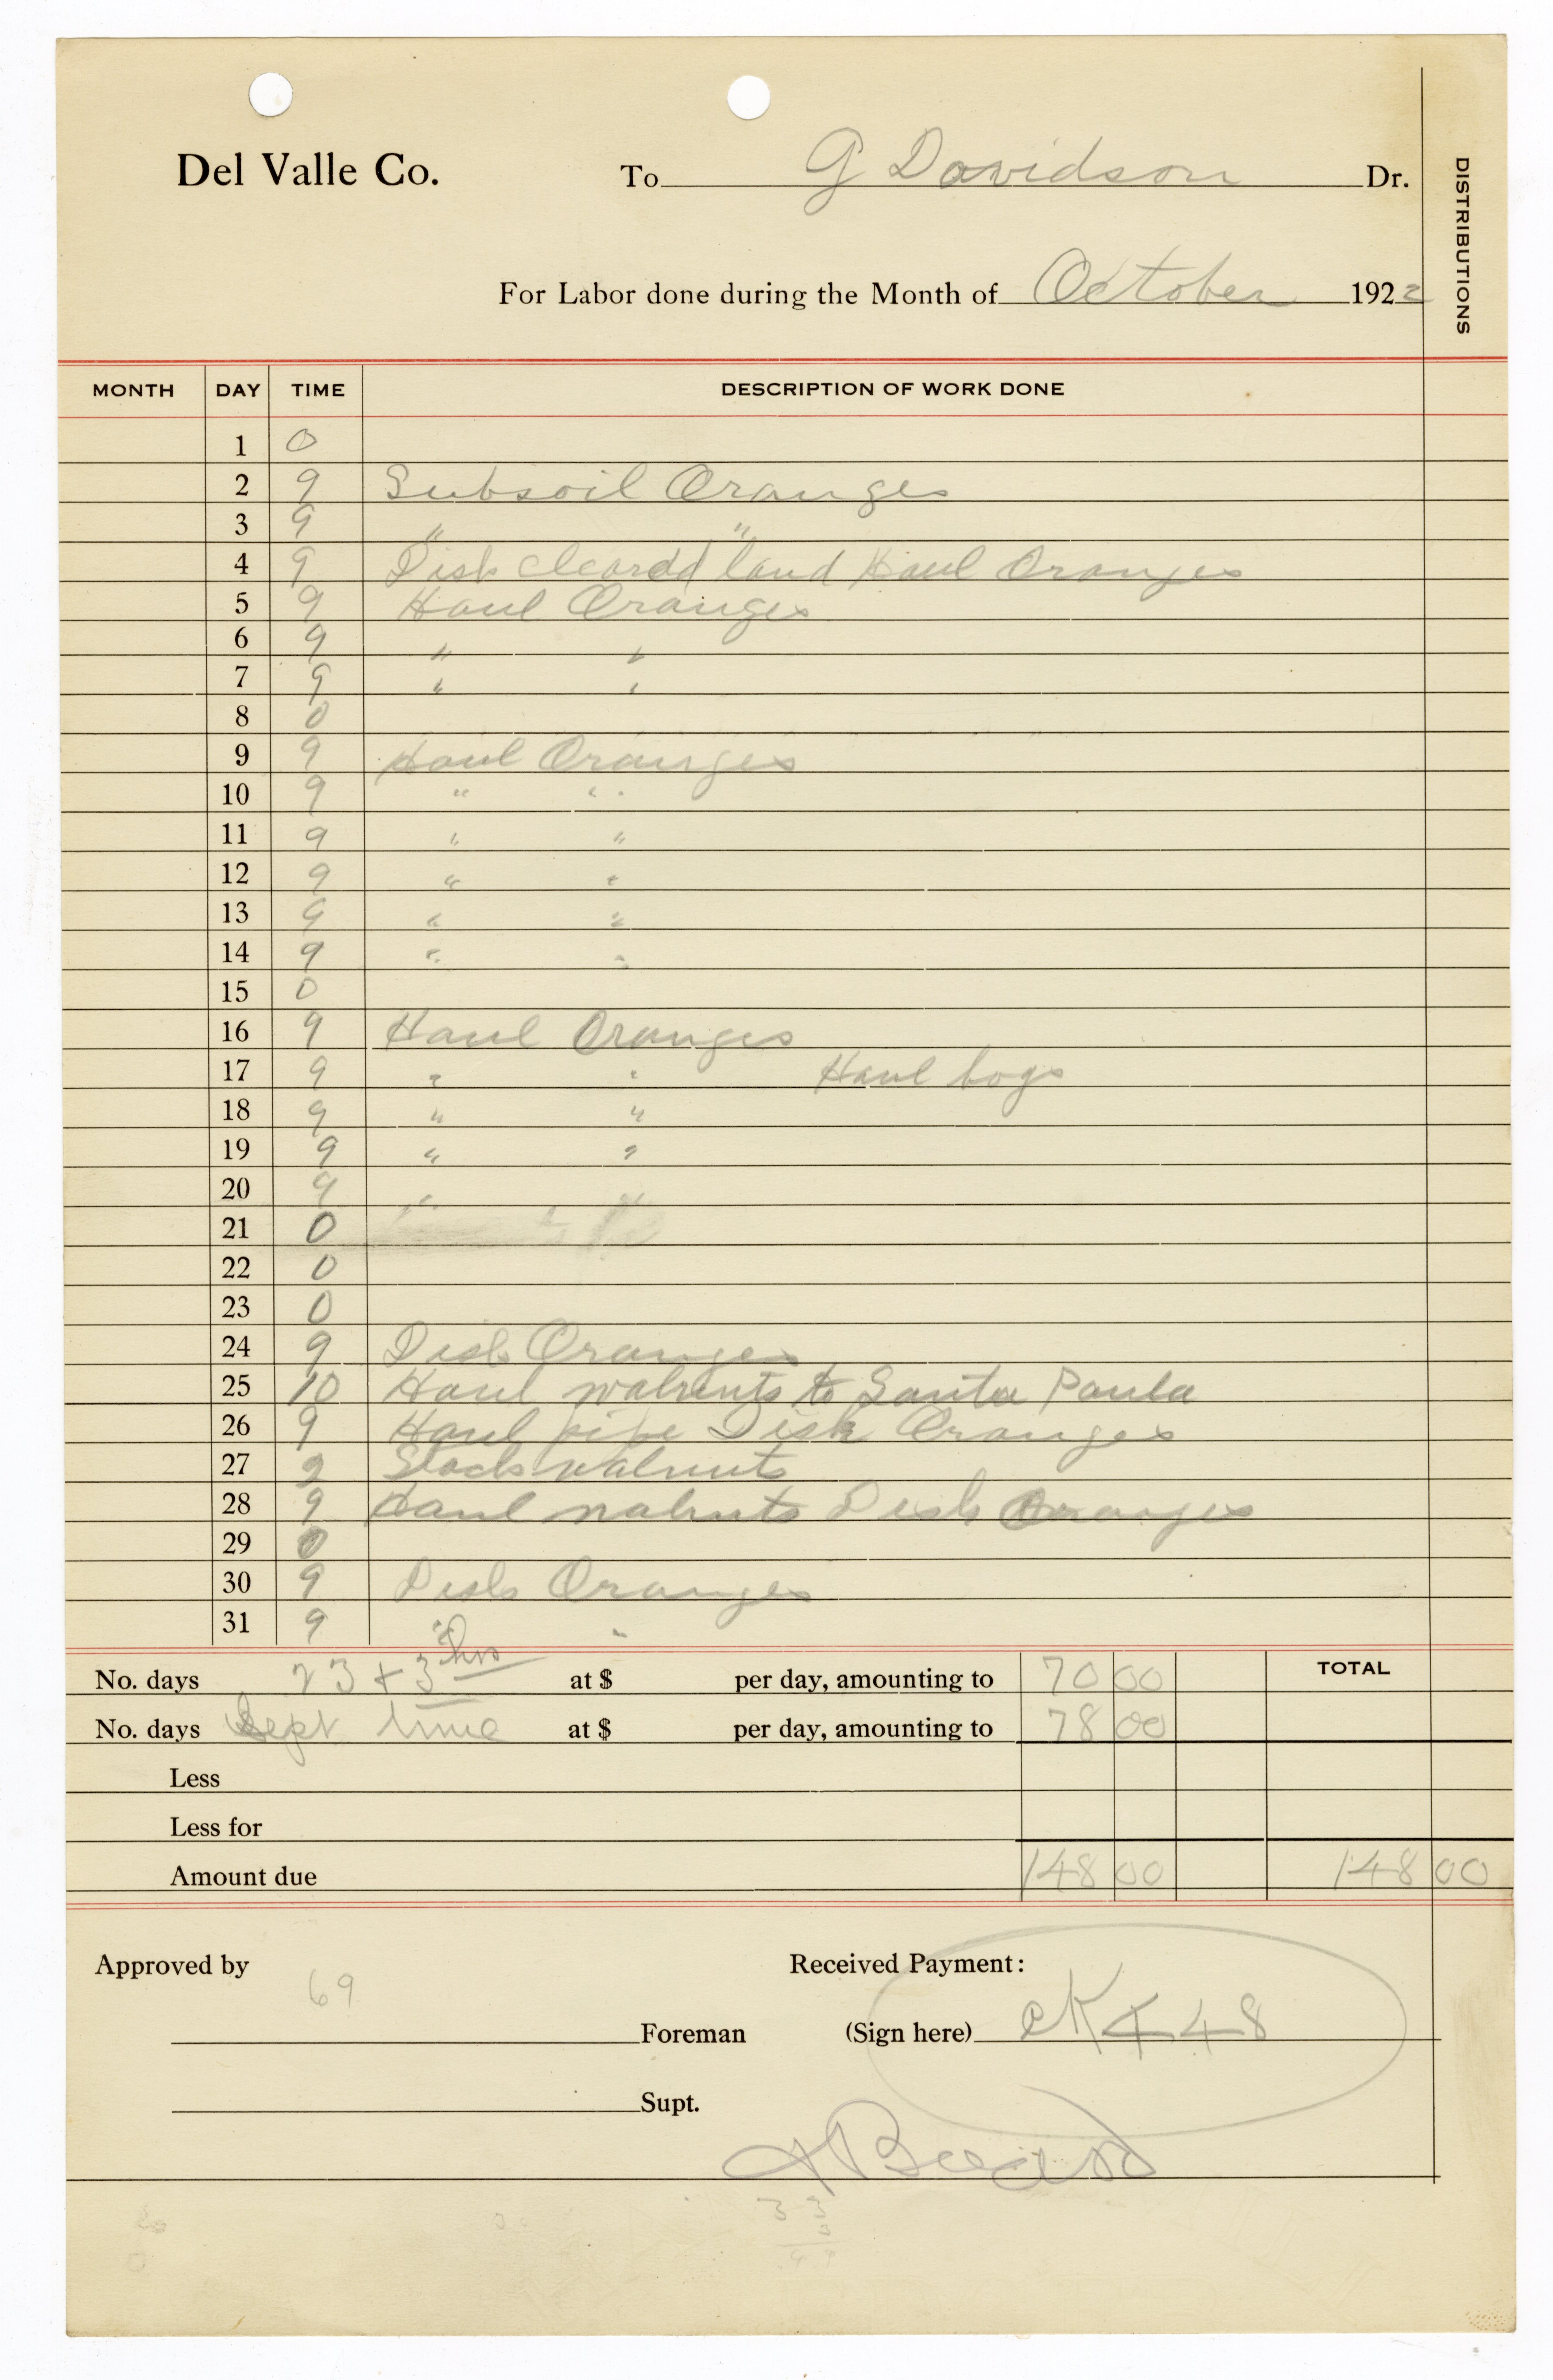 Del Valle Co. To G Davidson Dr.
DISTRIBUTIONS
For Labor done during the Month of October 1922
MONTH DAY TIME DESCRIPTION OF WORK DONE
1 0
2 9 Subsoil Oranges
3 9 " "
4 9 Disk cleardd land Haul Oranges
5 9 Haul Oranges
6 9 " "
7 9 " "
8 0
9 9 Haul Oranges
10 9 " "
11 9 " "
12 9 " "
13 9 " "
14 9 " "
15 0
16 9 Haul Oranges
17 9 " " Haul hogs
18 9 " "
19 9 " "
20 9 " "
21 0
22 0
23 0
24 9 Disk Oranges
25 10 Haul walnuts to Santa Paula
26 9 Haul pipe Disk Oranges
27 2 walnuts
28 9 Haul walnuts Disk Oranges
29 0
30 9 Disk Oranges
31 9 " "
No. days 23 + 3 hrs at $ per day, amounting to 70 00 TOTAL
No. days Sept time at $ per day, amounting to 78 00
Less
Less for
Amount due 148 00 148 00
Approved by Received Payment:
69
Foreman (Sign here) CK 448
Supt.